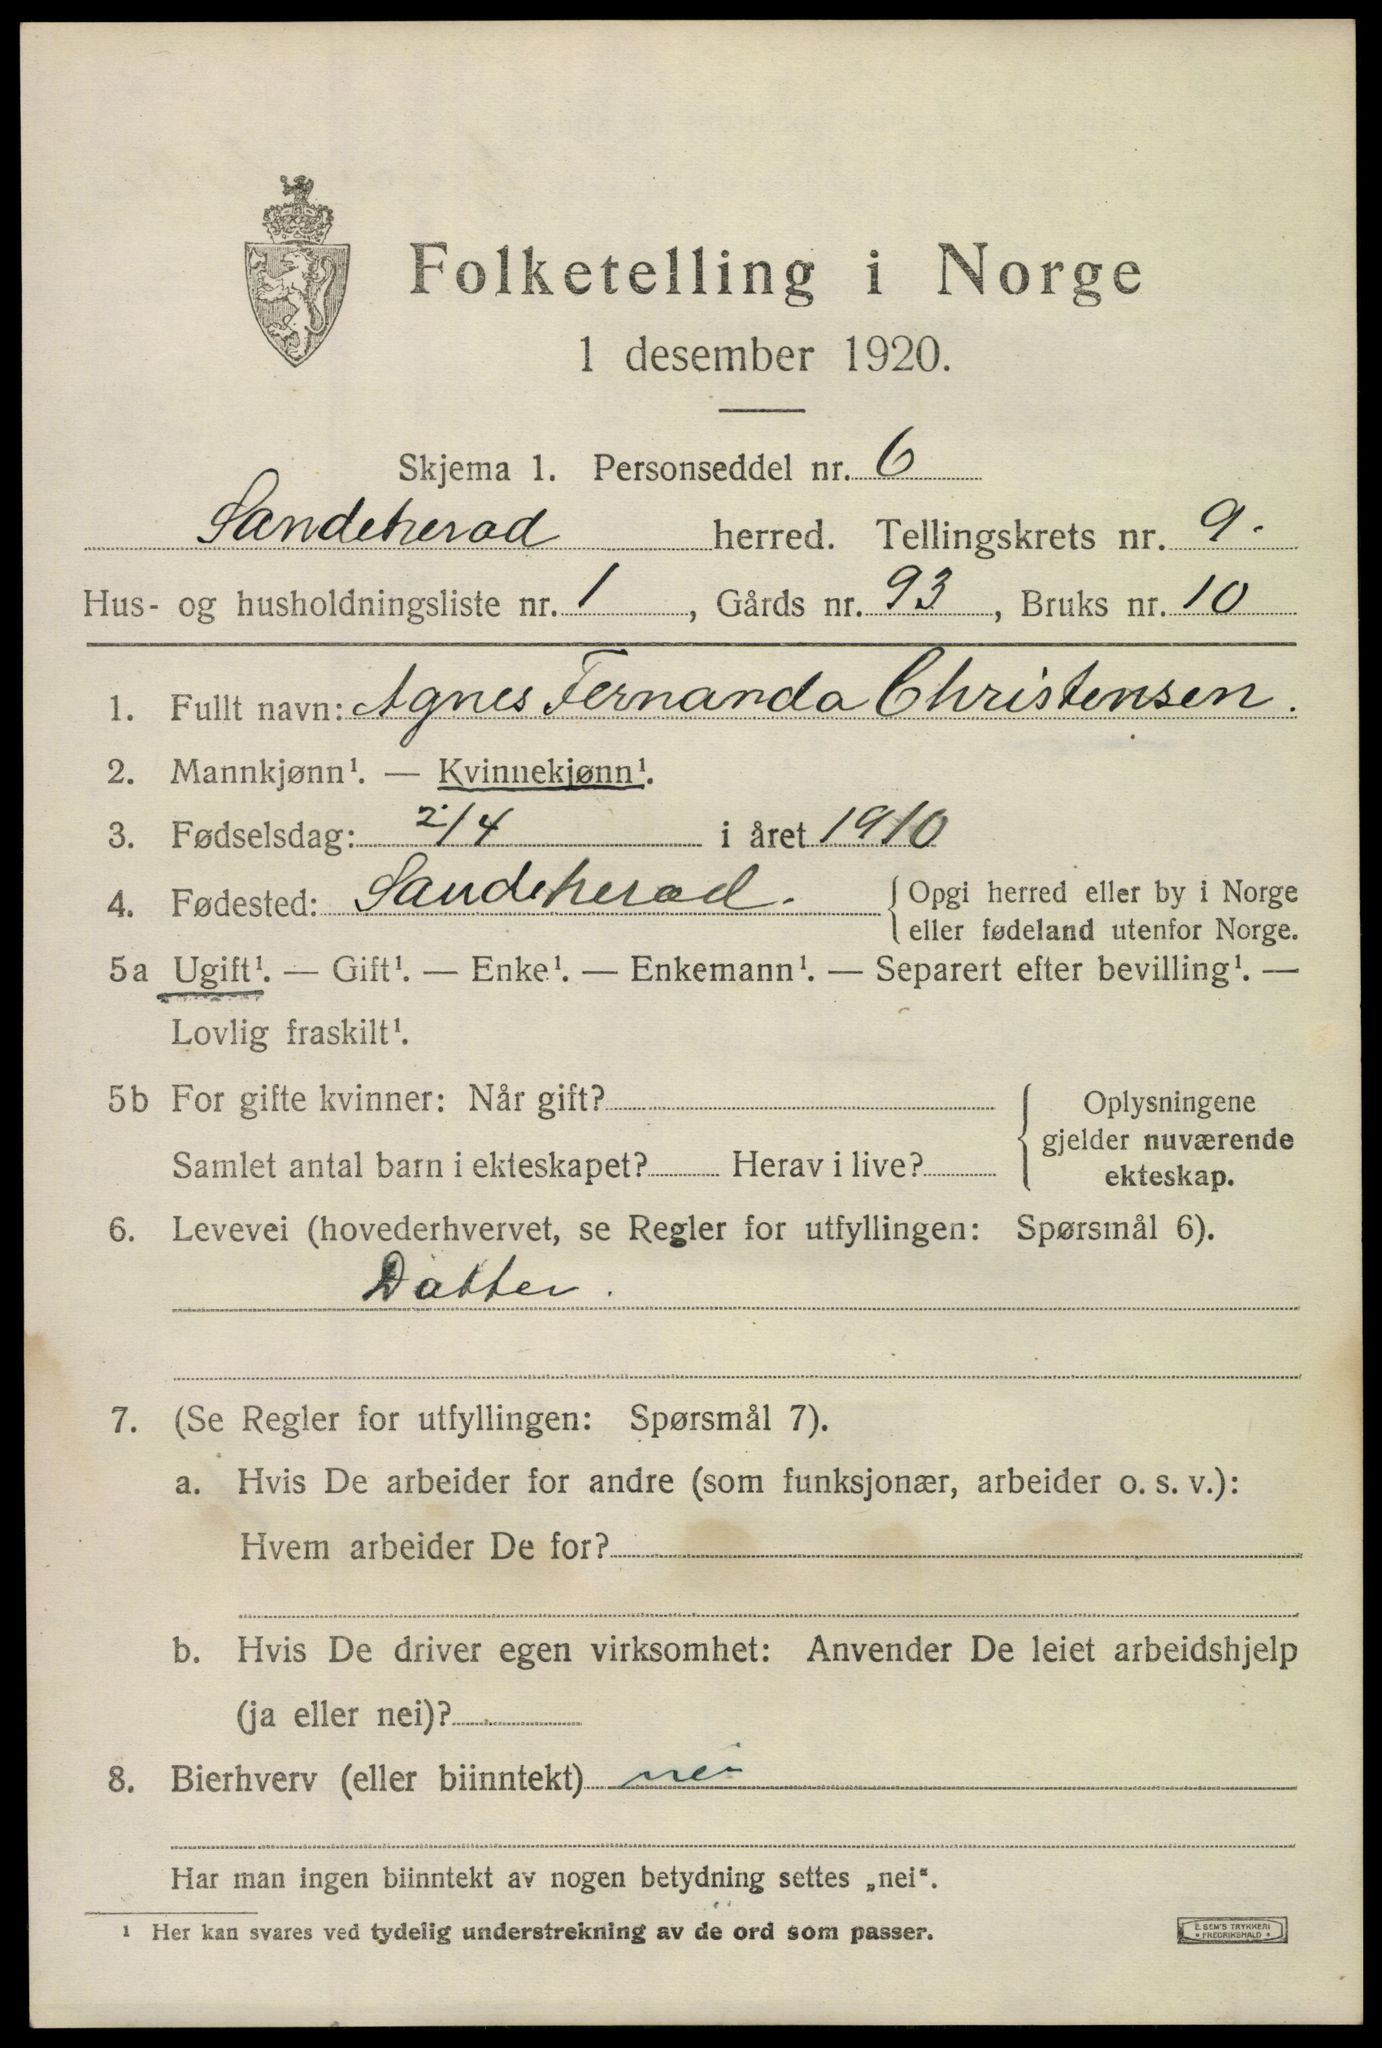 Folketelling i Norge
1 desember 1920.
Skjema 1. Personseddel nr. 6
Sandeherad herred. Tellingskrets nr. 9.
Hus- og husholdningsliste nr. 1, Gårds nr. 93, Bruks nr. 10
1. Fullt navn: Agnes Fernanda Christensen.
2. Mannkjønn¹. — Kvinnekjønn¹.
3. Fødselsdag: 2/4 i året 1910
4. Fødested: Sandeherad. { Opgi herred eller by i Norge
eller fødeland utenfor Norge.
5a Ugift¹. — Gift¹. — Enke¹. — Enkemann¹. — Separert efter bevilling¹. —
Lovlig fraskilt¹.
5b For gifte kvinner: Når gift? { Oplysningene
gjelder nuværende
Samlet antal barn i ekteskapet? Herav i live? ekteskap.
6. Levevei (hovederhvervet, se Regler for utfyllingen: Spørsmål 6).
Datter.
7. (Se Regler for utfyllingen: Spørsmål 7).
a. Hvis De arbeider for andre (som funksjonær, arbeider o. s. v.):
Hvem arbeider De for?
b. Hvis De driver egen virksomhet: Anvender De leiet arbeidshjelp
(ja eller nei)?
8. Bierhverv (eller biinntekt) nei
Har man ingen biinntekt av nogen betydning settes „nei“.
¹ Her kan svares ved tydelig understrekning av de ord som passer.
E. SEM'S TRYKKERI
* FREDRIKSHALD *